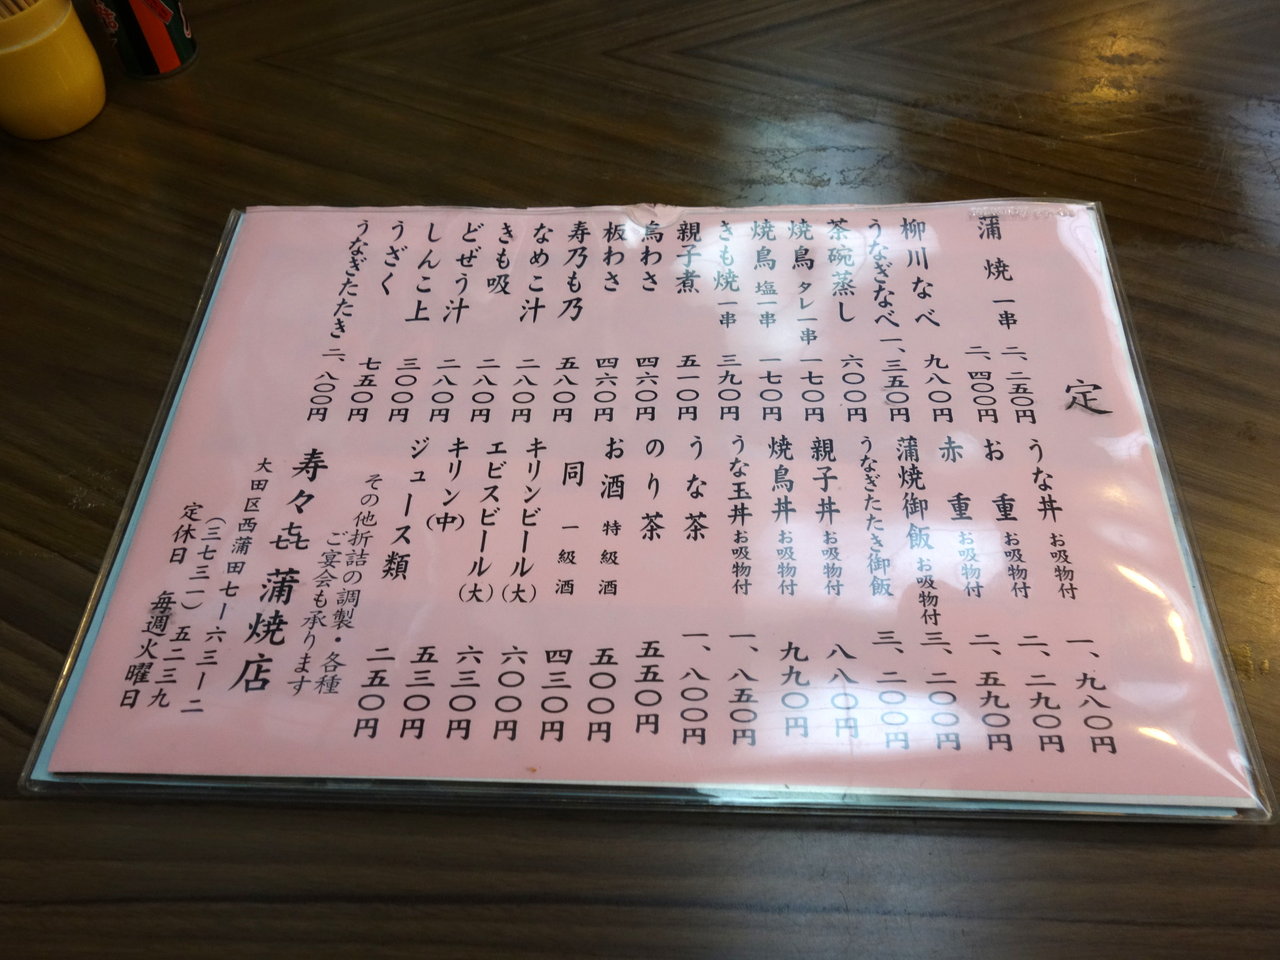 定
蒲焼 一串 二、二五〇円
二、四〇〇円
柳川なべ 九八〇円
うなぎなべ 一、三五〇円
茶碗蒸し 六〇〇円
焼鳥 タレ一串 一七〇円
焼鳥 塩一串 一七〇円
きも焼 一串 三九〇円
親子煮 五一〇円
鳥わさ 四六〇円
板わさ 四六〇円
寿乃も乃 五八〇円
なめこ汁 二八〇円
きも吸 二八〇円
どぜう汁 二八〇円
しんこ上 三〇〇円
うざく 七五〇円
うなぎたたき 二、八〇〇円
うな丼 お吸物付 一、九八〇円
お重 お吸物付 二、二九〇円
赤重 お吸物付 二、五九〇円
蒲焼御飯 お吸物付 三、二〇〇円
うなぎたたき御飯 三、二〇〇円
親子丼 お吸物付 八八〇円
焼鳥丼 お吸物付 九九〇円
うな玉丼 お吸物付 一、八五〇円
うな茶 一、八〇〇円
のり茶 五五〇円
お酒 特級酒 五〇〇円
同 一級酒 四三〇円
キリンビール(大) 六〇〇円
エビスビール(大) 六三〇円
キリン(中) 五三〇円
ジュース類 二五〇円
その他折詰の調製・各種
ご宴会も承ります
寿々㐂 蒲焼店
大田区西蒲田七ー六三ー二
(三七三一)五二三九
定休日 毎週火曜日